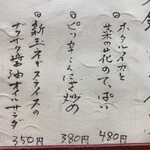 ホタルイカと
菜の花のてっぱい
480円
ピリ辛こんにゃく炒め
380円
新玉ネギスライスの
ザクザク醤油オイルサラダ
350円